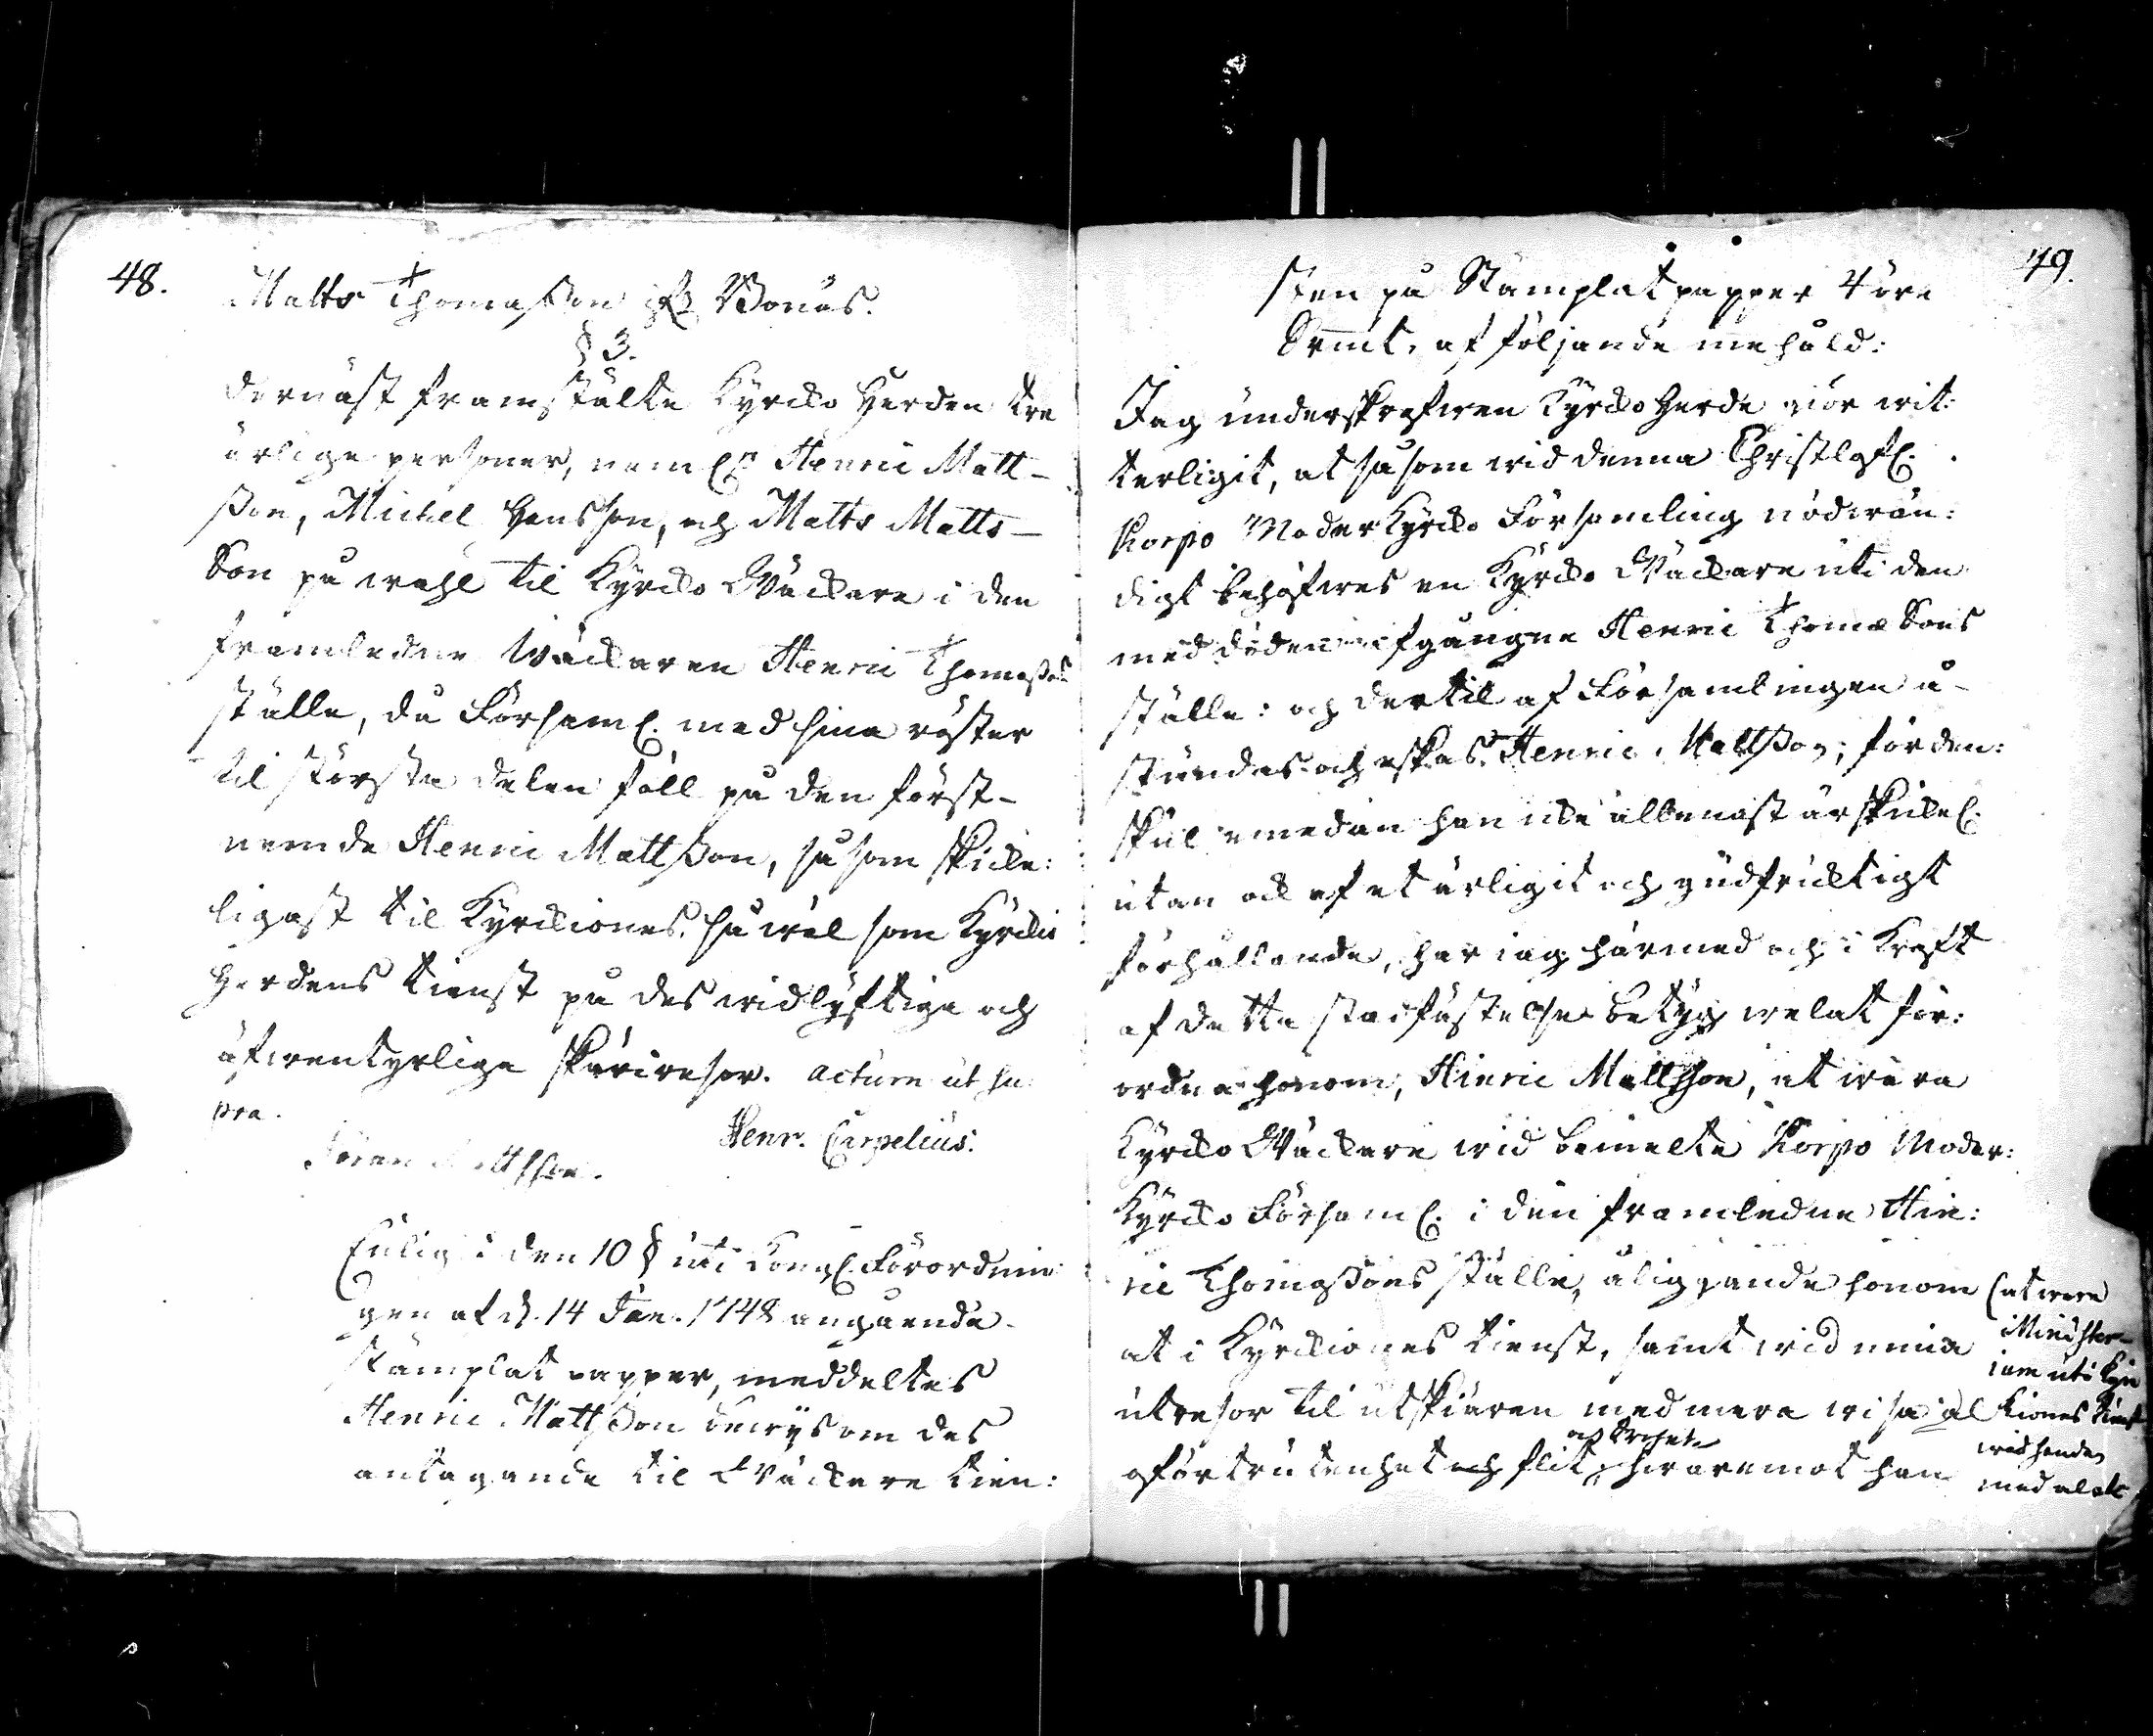 48.
Matts Thomasson ifr. Bonäs.
§ 3.
Dernäst framstälte Kyrcko Herden tre
ärlige personer, neml:n Henric Matt-
sson, Michel Hansson, och Matts Matts-
Son på wahl til Kyrcko Wäckare i den
framledne Wäckaren Henric Thomassons
ställe, då Församl. med sina röster
til största delen föll på den först-
nemde Henric Mattsson, såsom skicke:
ligast til Kyrckiones, så wäl som Kyrckio
Herdens tienst på des widlyftige och
äfwentyrlige skäriresor. Actum ut su-
pra.
Henr. Carpelius.
Jöran Mattsson.
Enligit den 10 § uti Kongl. Förordnin:
gen af d. 14 Jan. 1748 angående
stämplat papper, meddeltes
Henric Mattsson bewis om des
antagande til Wäckare tien:
49.
sten på Stämplat papper 4 öre
Srmt. af följande innehåld:
Jag underskrefwen Kyrcko Herde giör wit:
terligit, at såsom wid denna Christlofl.
Korpo Moder Kyrcko Församling nödwän:
digt behöfwes en Kyrcko Wäckare uti den
med döden afgångne Henric Thomæ Sons
ställe: och dertil af Församlingen å-
stundas och eskas Henric Mattsson; förden:
skul emedan han icke allenast är skickl.
utan ock af et ärligit och gudfrucktigt
förhållande, har iag härmed och i Kraft
af detta stadfästelse betyg welat för:
ordna honom, Hinric Mattsson, at wara
Kyrcko Wäckare wid bemelte Korpo Moder:
Kyrcko Församl. i den framledne Hin:
ric Thomæsons ställe, åliggande honom
at i Kyrckiones tienst, samt wid mina
utresor til utskiären med mera wisa al
oförtrutenhet och flit, hwaremot han
och trohet
(at wara
Minister-
ium uti Kyr
kiones tienst
wid handen
med al